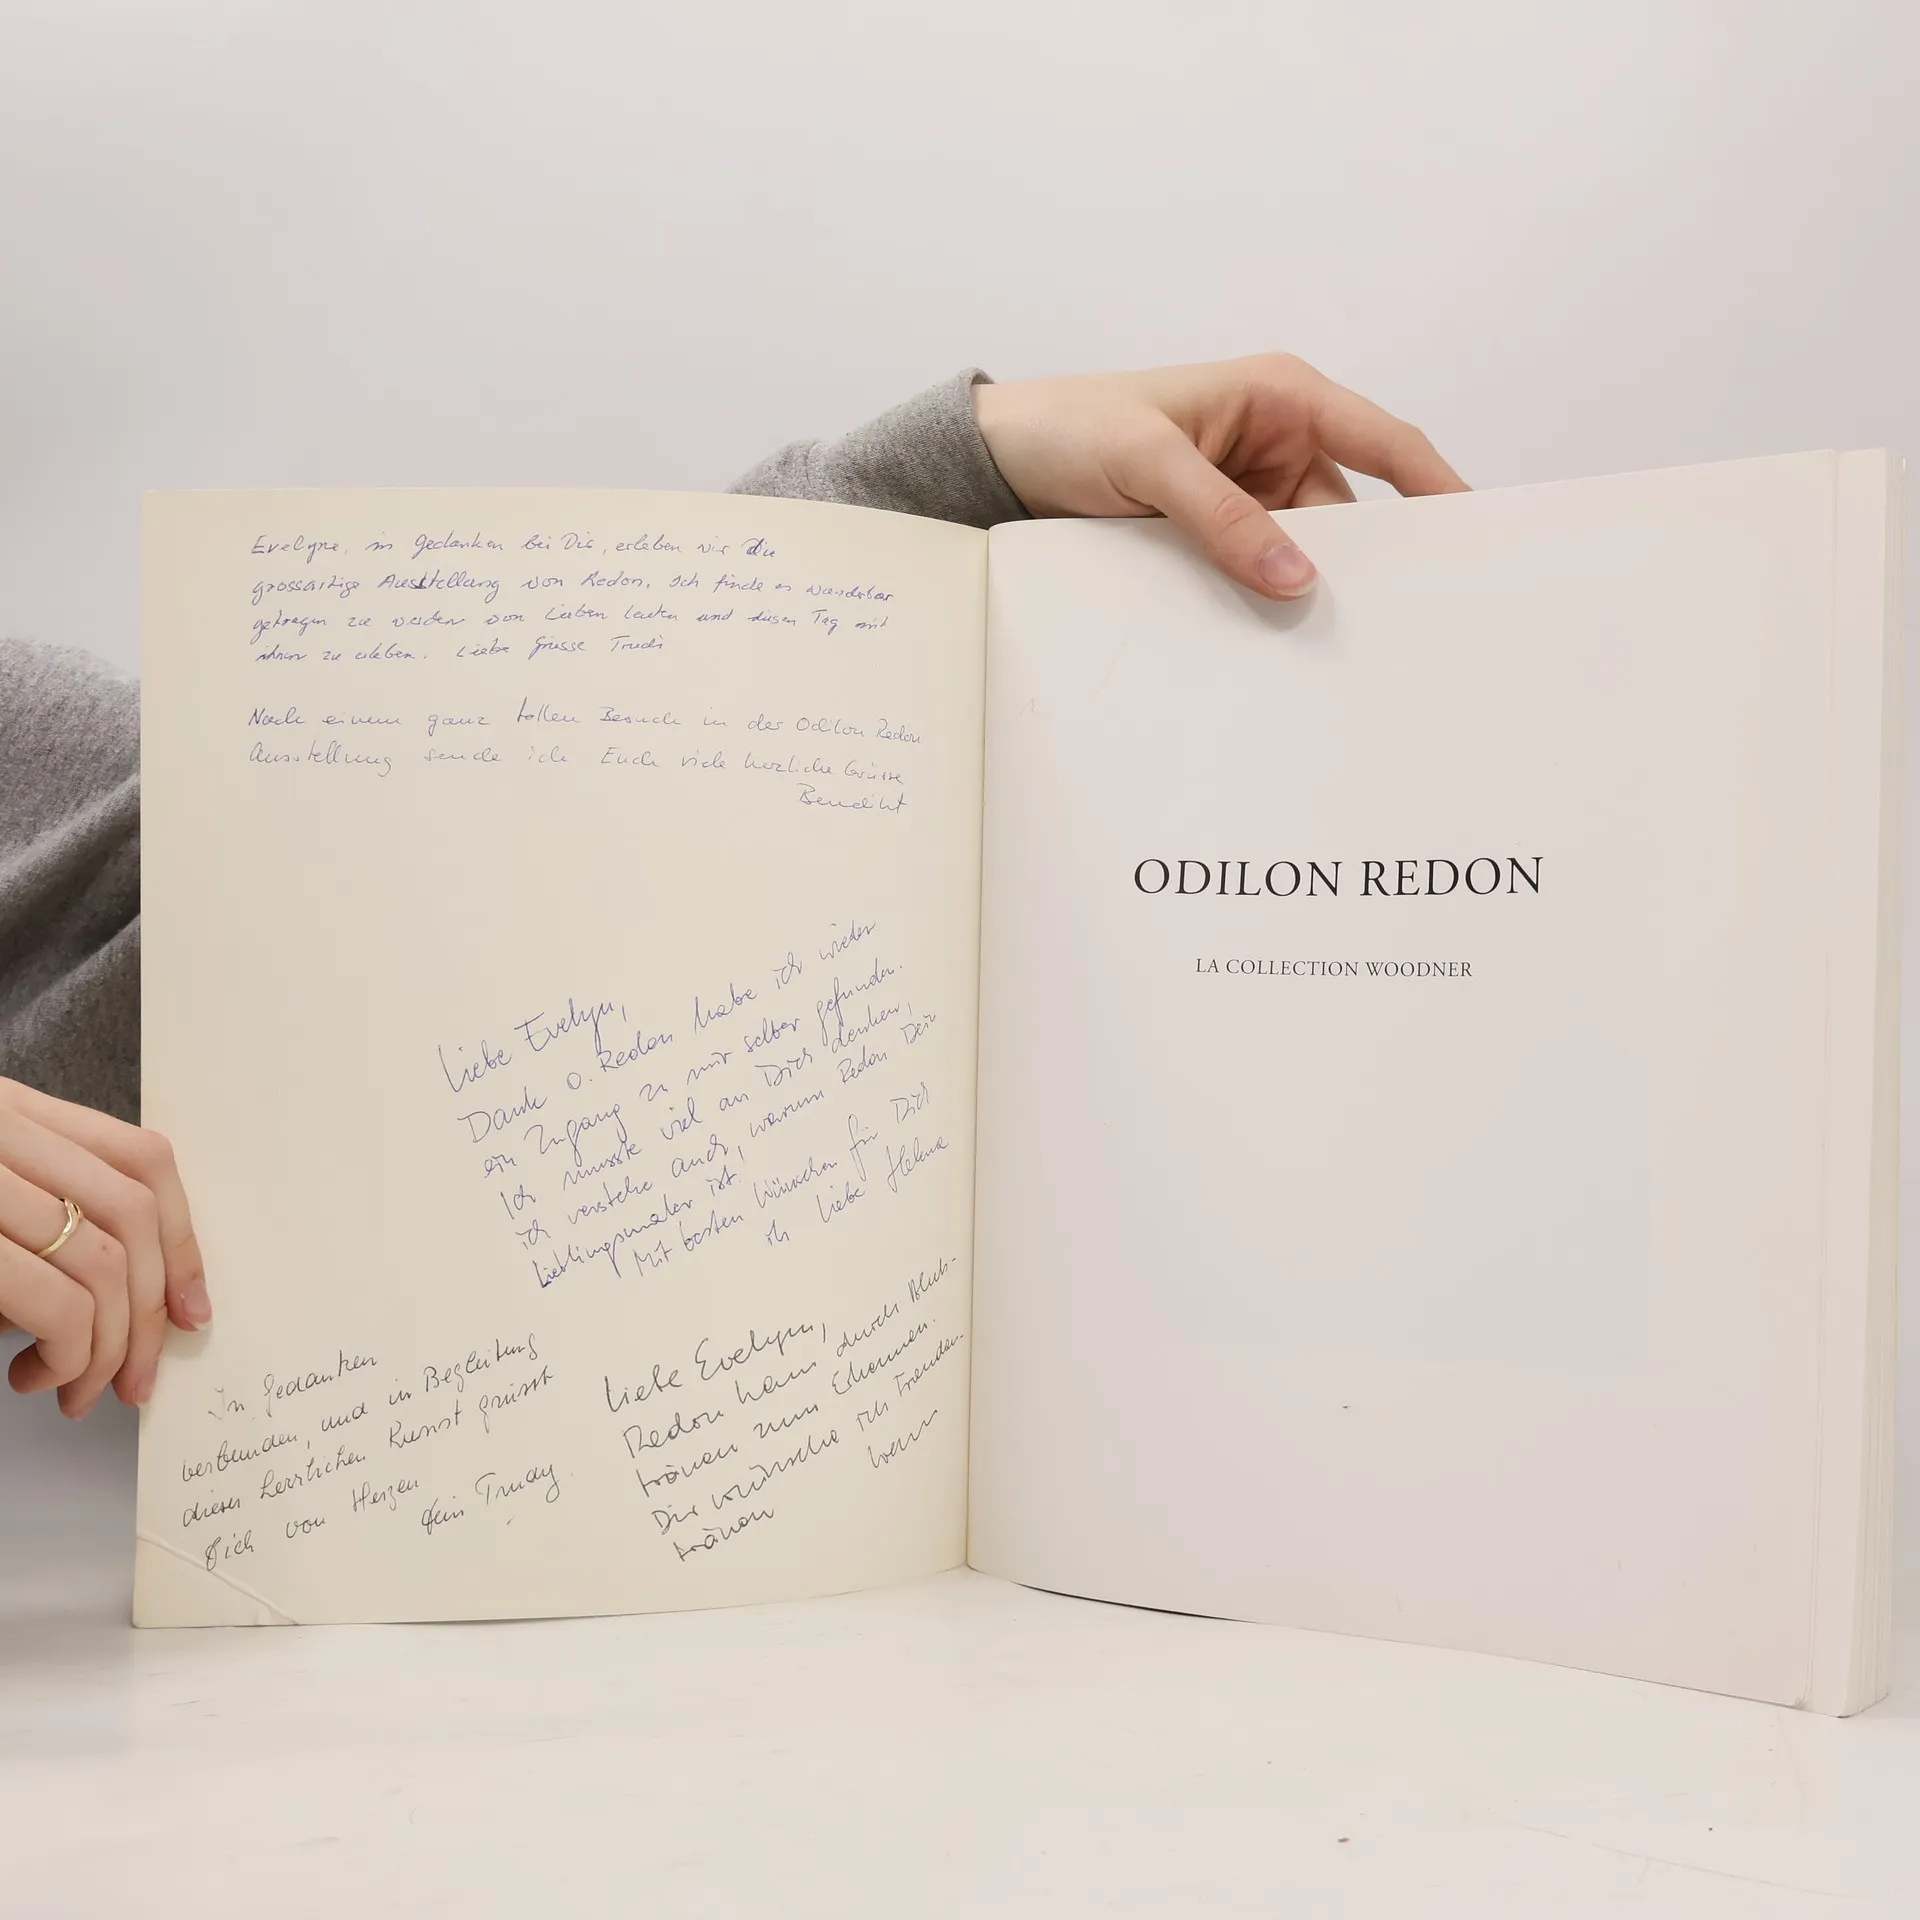 Evelyne, in Gedanken bei Dir, erleben wir die
grossartige Ausstellung von Redon. Ich finde es wunderbar
getragen zu werden von Lieben Leuten und diesen Tag mit
ihnen zu erleben. Liebe Grüsse Trudi
Nach einem ganz tollen Besuch in der Odilon Redon
Ausstellung sende ich Euch viele herzliche Grüsse
Benedikt
Liebe Evelyn,
Dank O. Redon habe ich wieder
ein Zugang zu mir selber gefunden.
Ich musste viel an Dich denken,
ich verstehe auch, warum Redon Dein
Lieblingsmaler ist.
Mit besten Wünschen für Dich
Liebe Helena
In Gedanken
verbunden, und in Begleitung
dieser herrlichen Kunst grüsst
Dich von Herzen
Dein Trudy.
Liebe Evelyn,
Redon kam durch Bluts-
tränen zum Erkennen.
Dir wünsche ich Freuden-
tränen
ODILON REDON
LA COLLECTION WOODNER